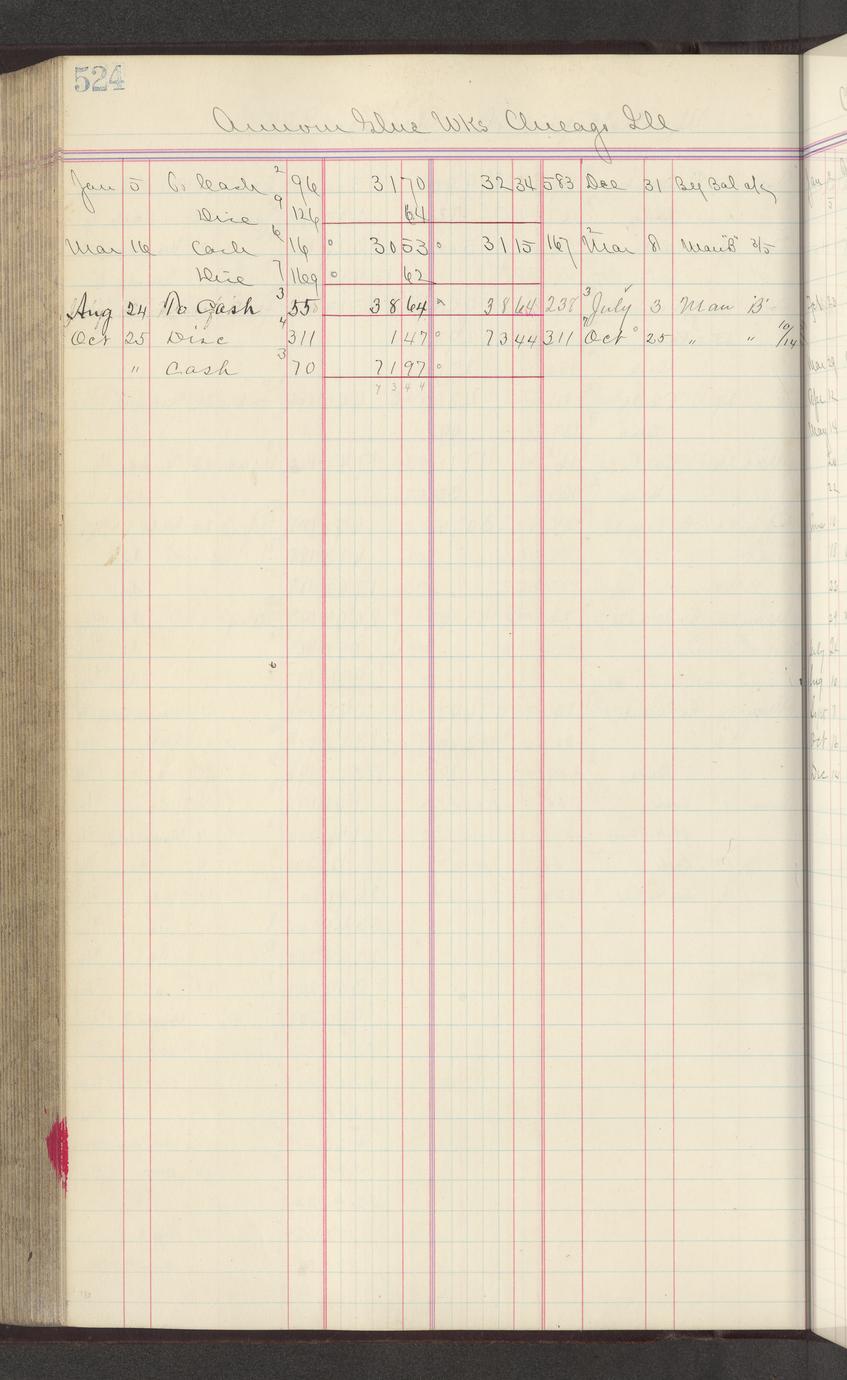 524
Armour Glue Wks Chicago Ill
Jan 5 To Cash 2 96 31 70 32 34 583 Dec 31 By Bal a/c
Disc 9 126 64
Mar 16 Cash 6 16 30 53 31 15 167 2 Mar 8 Man "B" 3/5
Disc 7 169 62
Aug 24 To Cash 3 55 38 64 38 64 238 3 July 3 Man "B"
Oct 25 Disc 4 311 1 47 73 44 311 Oct 25 " " 10/14
" Cash 3 70 71 97
73 44